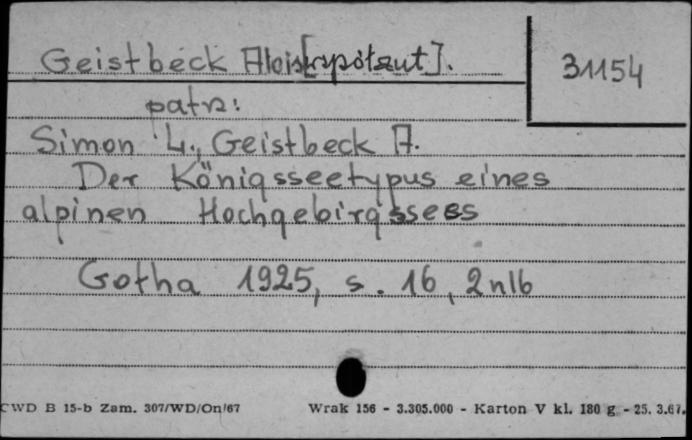 Geistbeck Alois [współaut].
31154
patrz:
Simon L., Geistbeck A.
Der Königsseetypus eines
alpinen Hochgebirgssees
Gotha 1925, s. 16, 2 nlb
CWD B 15-b Zam. 307/WD/On/67 Wrak 156 - 3.305.000 - Karton V kl. 180 g - 25. 3.67.